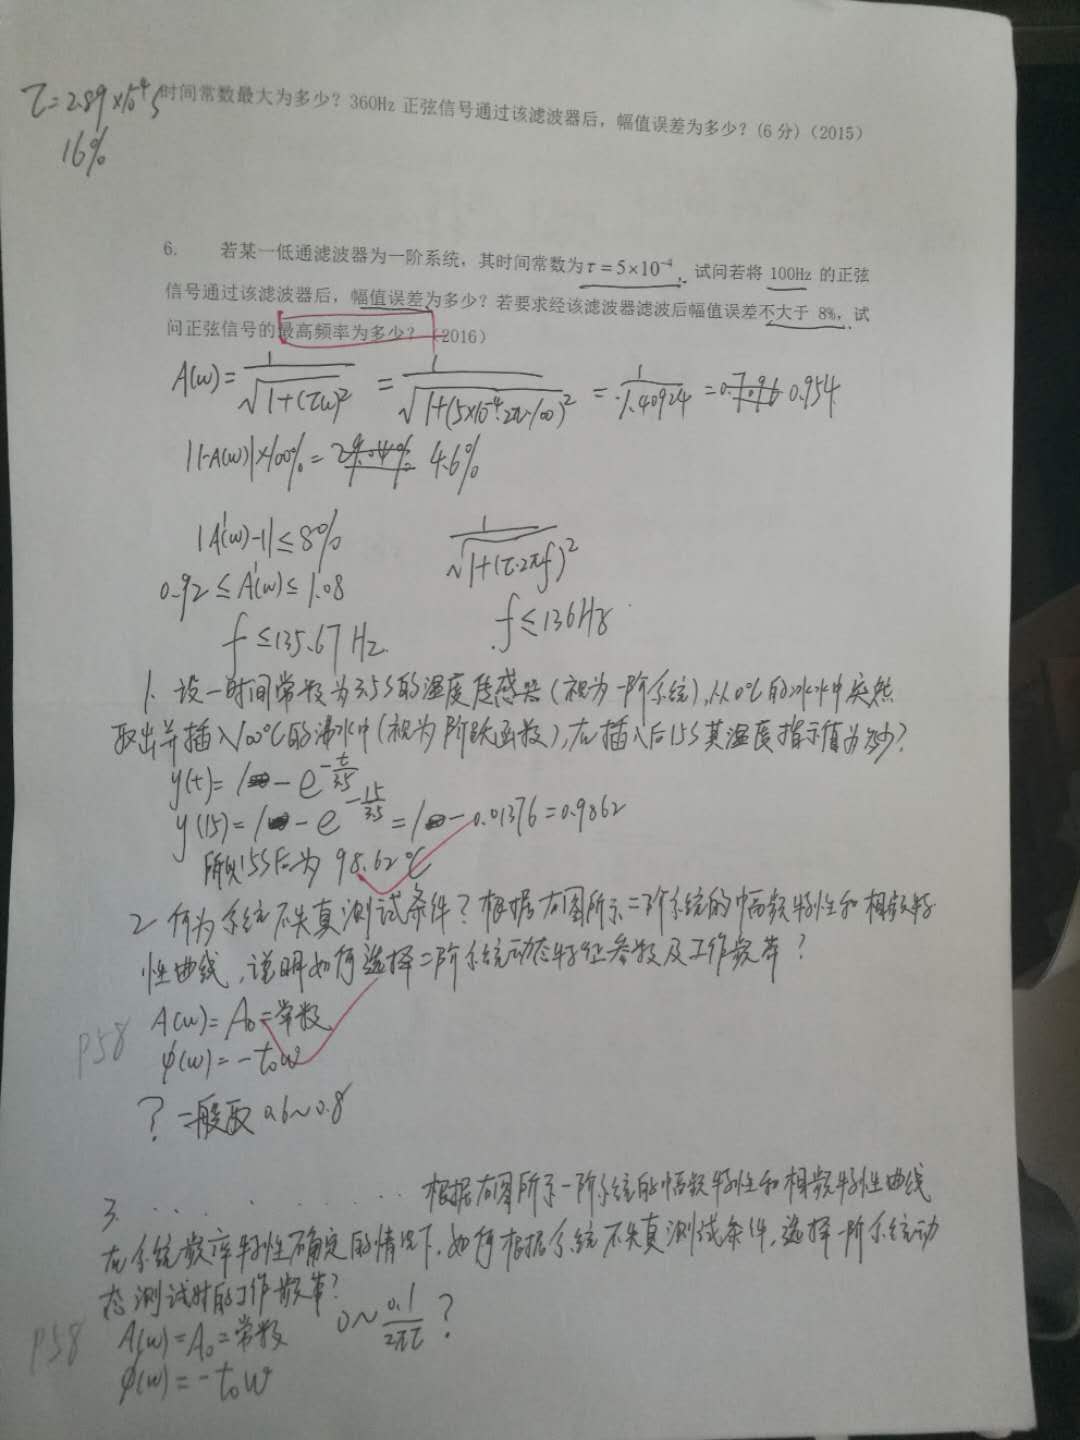 τ=2.89×10⁻⁴s
时间常数最大为多少？360Hz 正弦信号通过该滤波器后，幅值误差为多少？(6 分)（2015）
16%
6. 若某一低通滤波器为一阶系统，其时间常数为τ=5×10⁻⁴，试问若将 100Hz 的正弦
信号通过该滤波器后，幅值误差为多少？若要求经该滤波器滤波后幅值误差不大于 8%，试
问正弦信号的最高频率为多少？（2016）
A(ω)=1/√(1+(τω)²) = 1/√(1+(5×10⁻⁴·2π·100)²) = 1/1.40924 = 0.7096 0.954
|1-A(ω)|×100%= 29.04% 4.6%
|A'(ω)-1|≤8%
1/√(1+(τ·2πf)²)
0.92≤A'(ω)≤1.08
f≤135.67Hz.
f≤136Hz
1. 设一时间常数为3.5S的温度传感器(视为一阶系统),从0℃的冰水中突然
取出并插入100℃的沸水中(视为阶跃函数),在插入后15S其温度指示值为多少?
y(t)=1-e^(-t/3.5)
y(15)=1-e^(-15/3.5)=1-0.01376=0.9862
所以15S后为 98.62℃
2 何为系统不失真测试条件？根据右图所示二阶系统的幅频特性和相频特
性曲线，说明如何选择二阶系统动态特征参数及工作频带？
A(ω)=A₀=常数
P58
φ(ω)=-t₀ω
? 一般取0.6~0.8
3. . . . . . . . 根据右图所示一阶系统的幅频特性和相频特性曲线
在系统频率特性不确定的情况下,如何根据系统不失真测试条件,选择一阶系统动
态测试时的工作频带?
A(ω)=A₀=常数 0~0.1/2πτ ?
P58
φ(ω)=-t₀ω